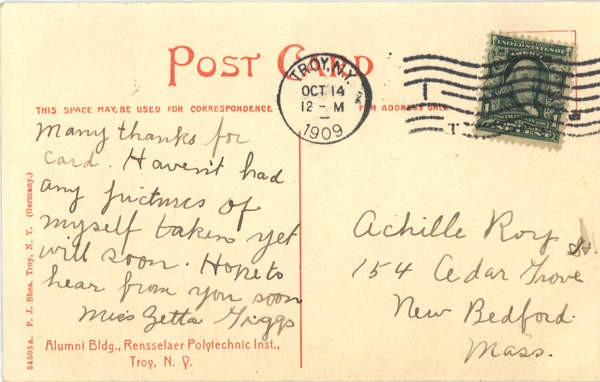 POST CARD
TROY, N.Y.
OCT 14
12 - M
1909
THIS SPACE MAY BE USED FOR CORRESPONDENCE
FOR ADDRESS ONLY
Many thanks for
card. Haven't had
any pictures of
myself taken yet
will soon. Hope to
hear from you soon
Miss Zetta Griggs
Achille Roy
154 Cedar Grove St.
New Bedford.
Mass.
Alumni Bldg., Rensselaer Polytechnic Inst.,
Troy, N. Y.
54505a. P. J. Shea, Troy, N. Y. (Germany.)